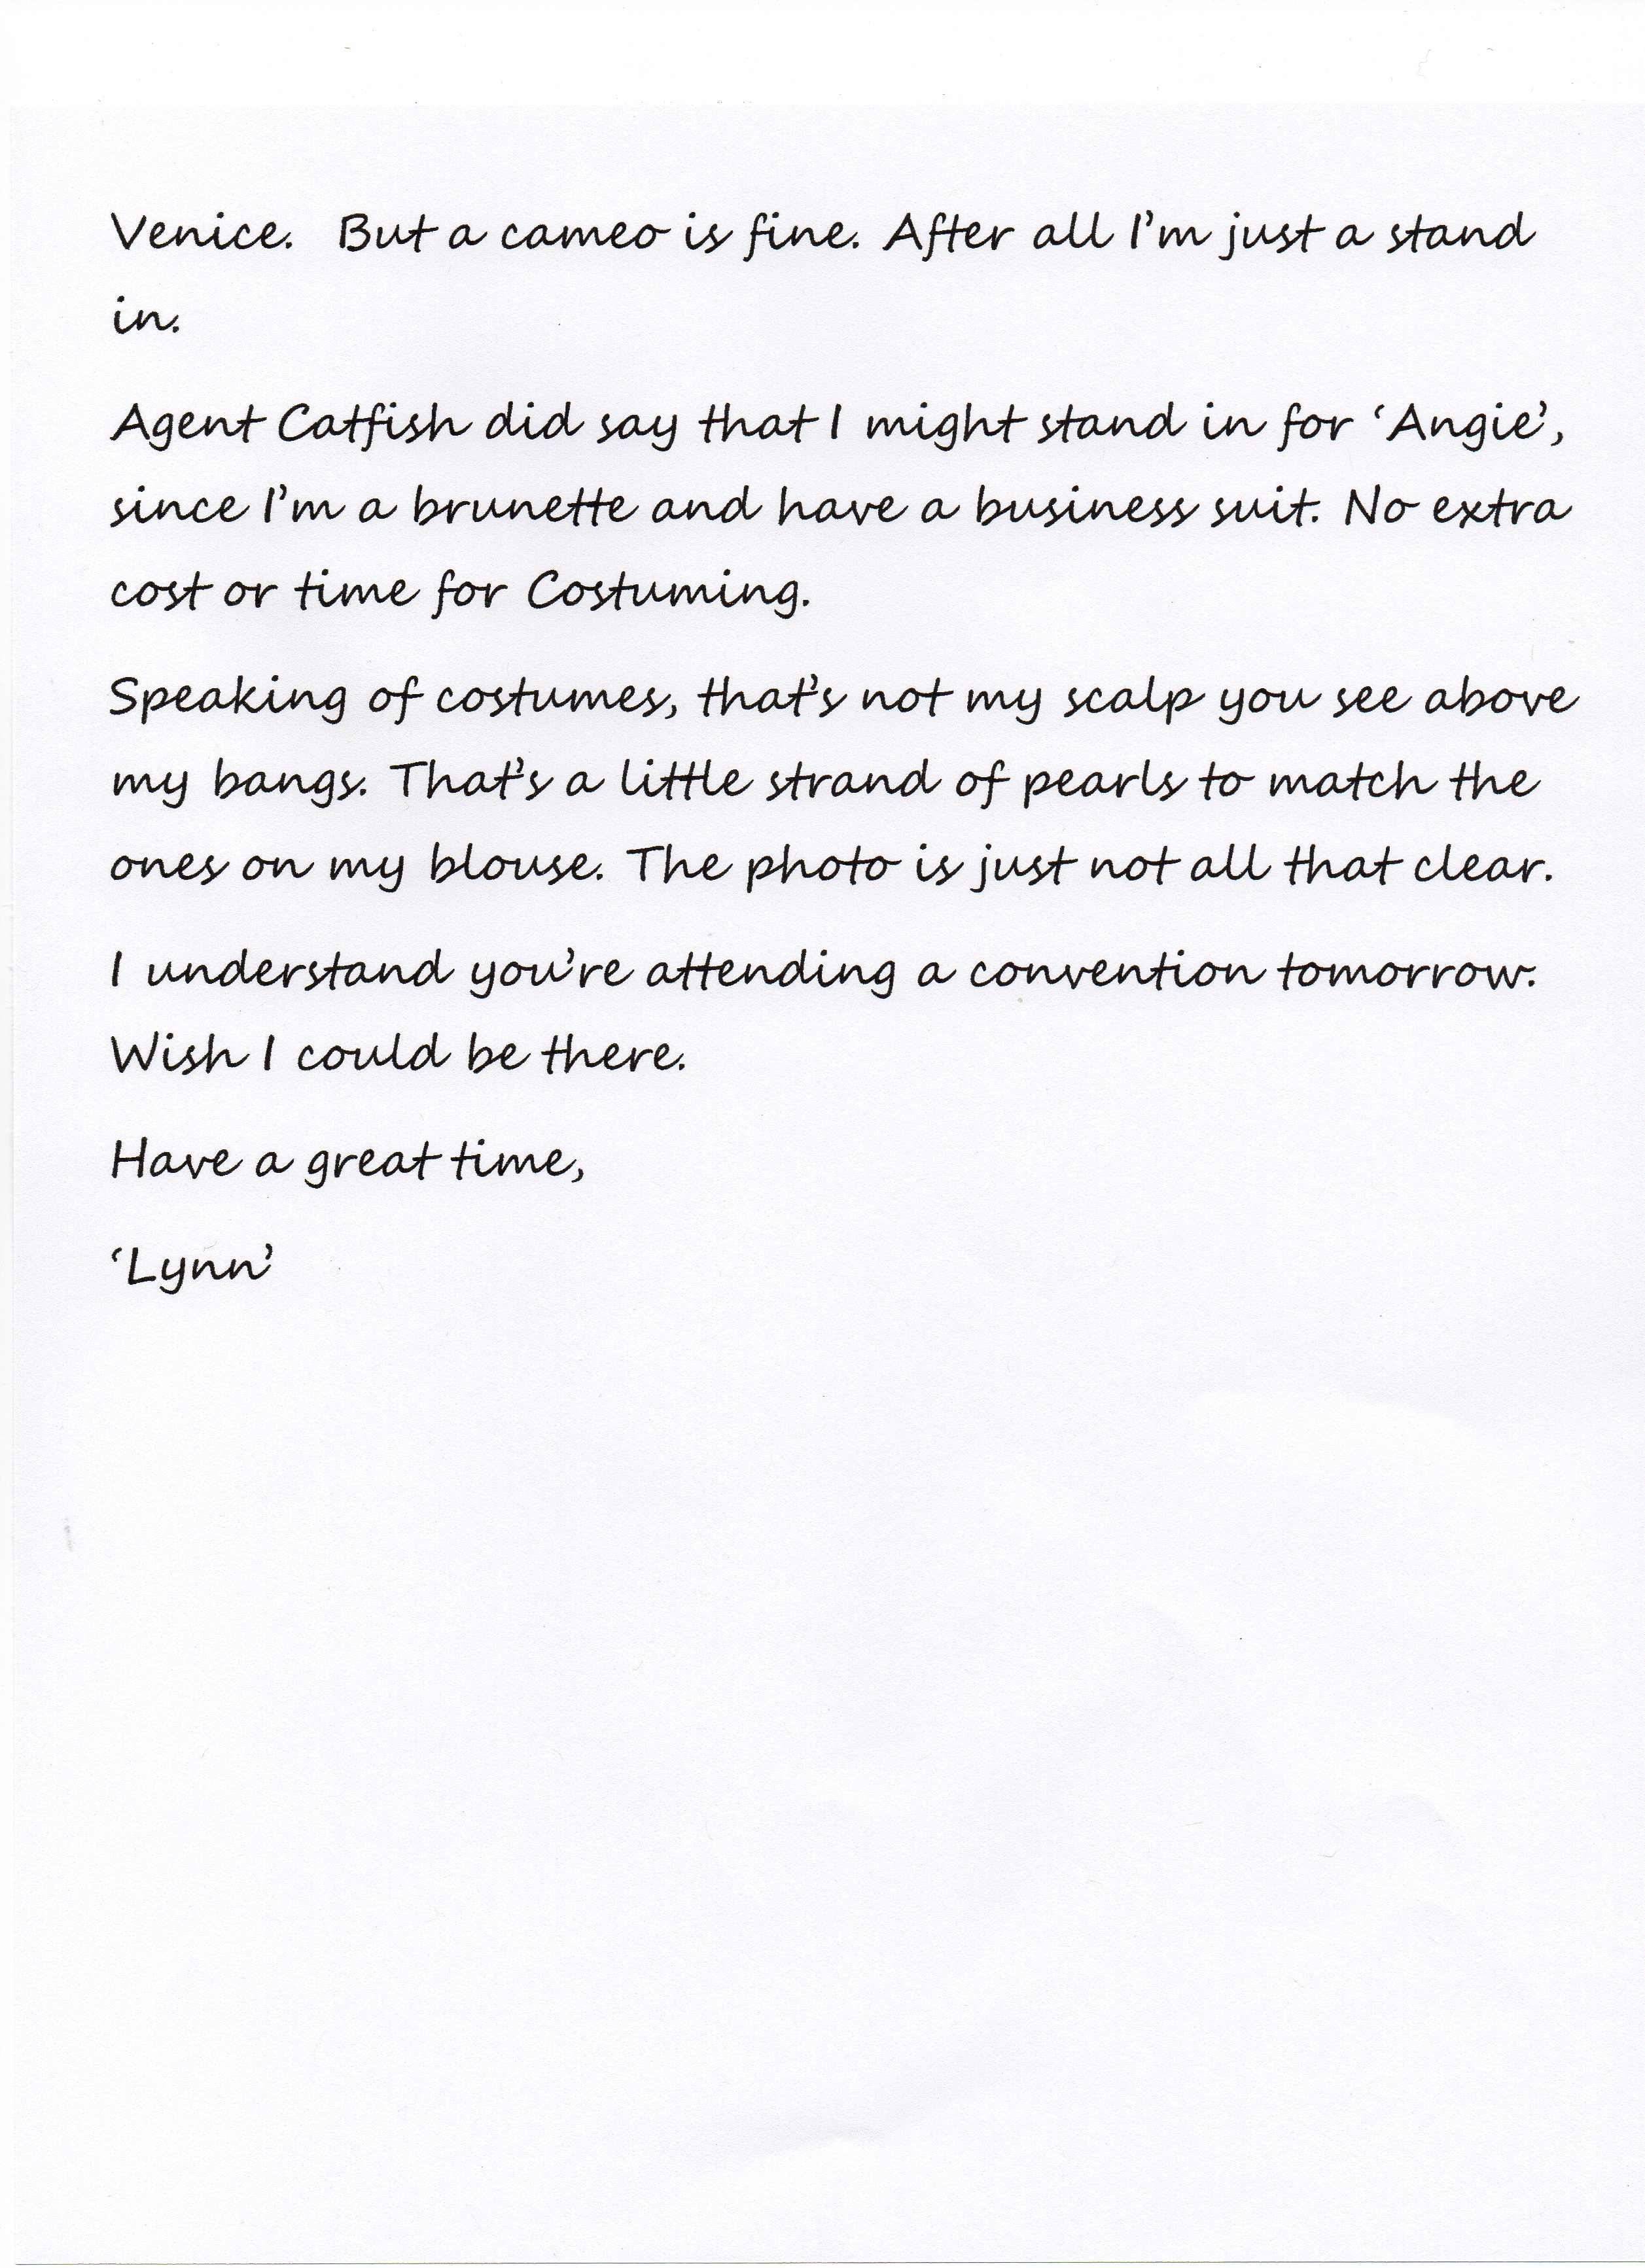 Venice.  But a cameo is fine. After all I'm just a stand
in.
Agent Catfish did say that I might stand in for ‘Angie’,
since I'm a brunette and have a business suit. No extra
cost or time for Costuming.
Speaking of costumes, that's not my scalp you see above
my bangs. That's a little strand of pearls to match the
ones on my blouse. The photo is just not all that clear.
I understand you're attending a convention tomorrow.
Wish I could be there.
Have a great time,
‘Lynn’